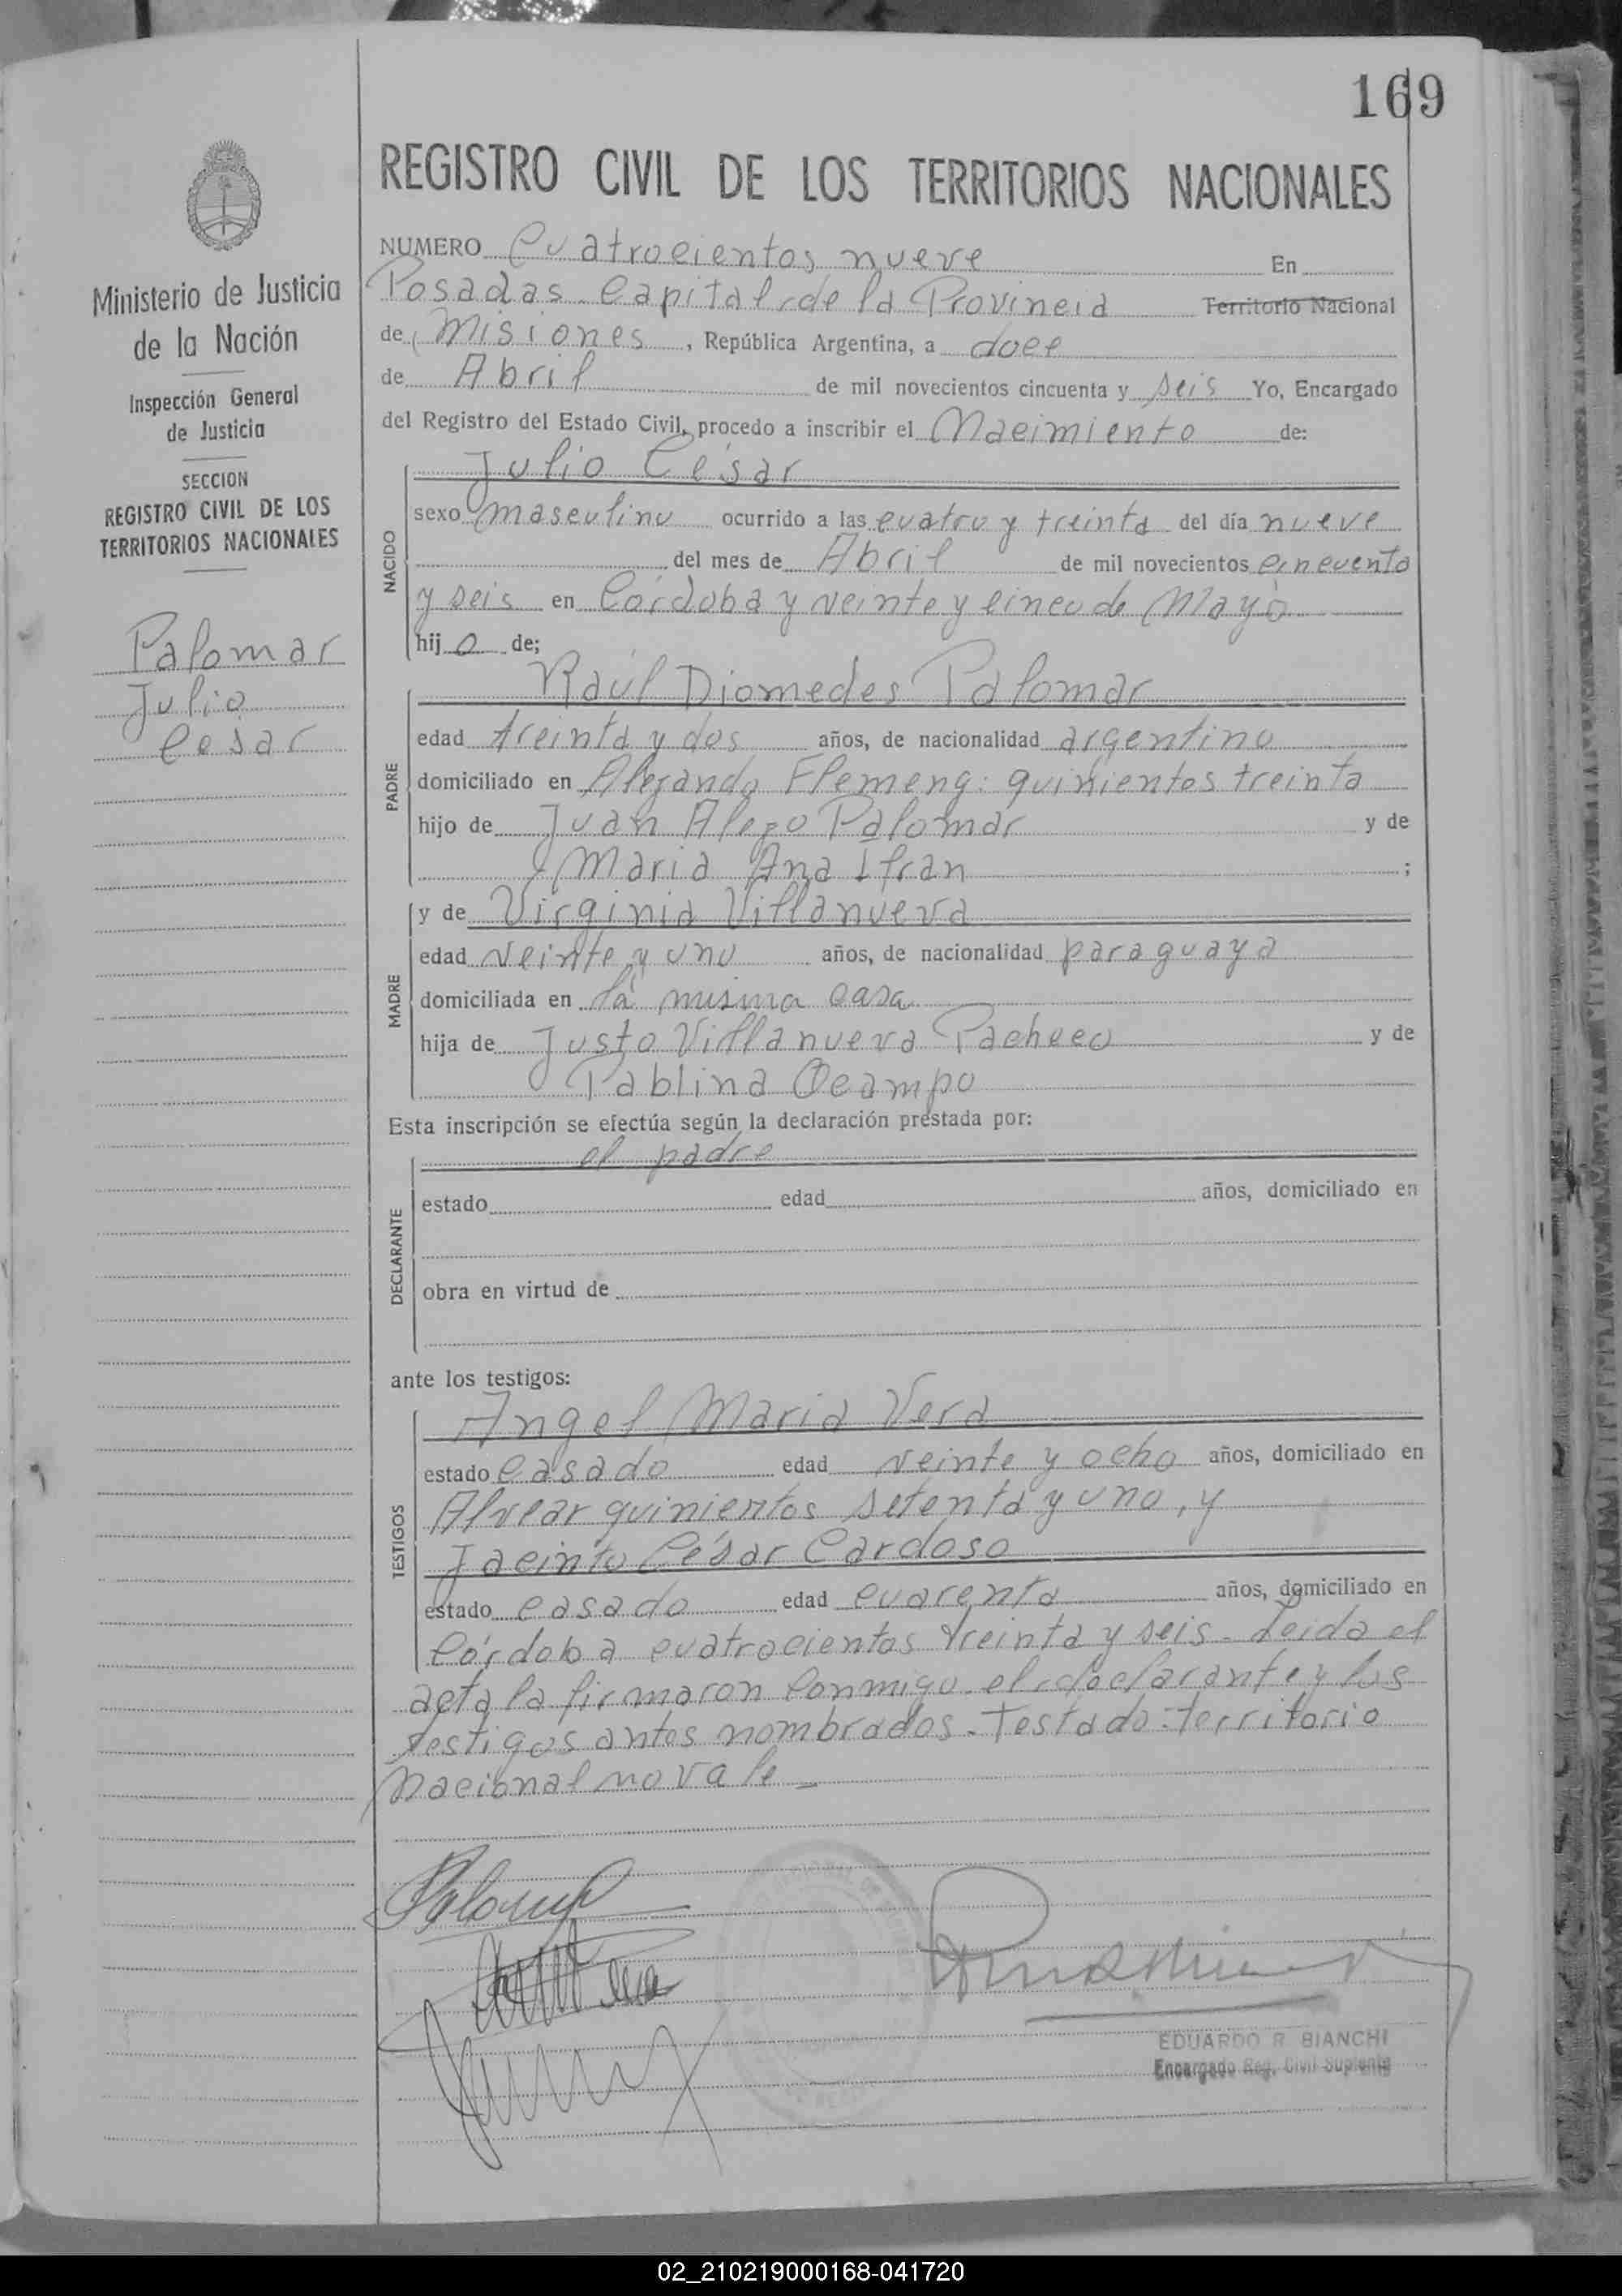 169
REGISTRO CIVIL DE LOS TERRITORIOS NACIONALES
Ministerio de Justicia
de la Nación
Inspección General
de Justicia
SECCION
REGISTRO CIVIL DE LOS
TERRITORIOS NACIONALES
Palomar
Julio
Cesar
NUMERO Cuatrocientos nueve En
Posadas Capital de la Provincia Territorio Nacional
de Misiones, República Argentina, a doce
de Abril de mil novecientos cincuenta y seis Yo, Encargado
del Registro del Estado Civil, procedo a inscribir el Nacimiento de:
NACIDO
Julio César
sexo masculino ocurrido a las cuatro y treinta del día nueve
del mes de Abril de mil novecientos cincuenta
y seis en Córdoba y veinte y cinco de Mayo
hijo de;
PADRE
Raúl Diomedes Palomar
edad treinta y dos años, de nacionalidad argentino
domiciliado en Alejando Flemeng: quinientos treinta
hijo de Juan Alejo Palomar y de
Maria Ana Ifran ;
MADRE
y de Virginia Villanueva
edad veinte y uno años, de nacionalidad paraguaya
domiciliada en la misma casa
hija de Justo Villanueva Pacheco y de
Pablina Ocampo
Esta inscripción se efectúa según la declaración prestada por:
el padre
DECLARANTE
estado edad años, domiciliado en
obra en virtud de
ante los testigos:
TESTIGOS
Angel Maria Vera
estado casado edad veinte y ocho años, domiciliado en
Alvear quinientos setenta y uno, y
Jacinto César Cardoso
estado casado edad cuarenta años, domiciliado en
Córdoba cuatrocientos treinta y seis. Leida el
acta la firmaron conmigo el declarante y los
testigos antes nombrados. Testado: territorio
Nacional no vale -
Palomar
EDUARDO R. BIANCHI
Encargado Reg. Civil Suplente
02_210219000168-041720